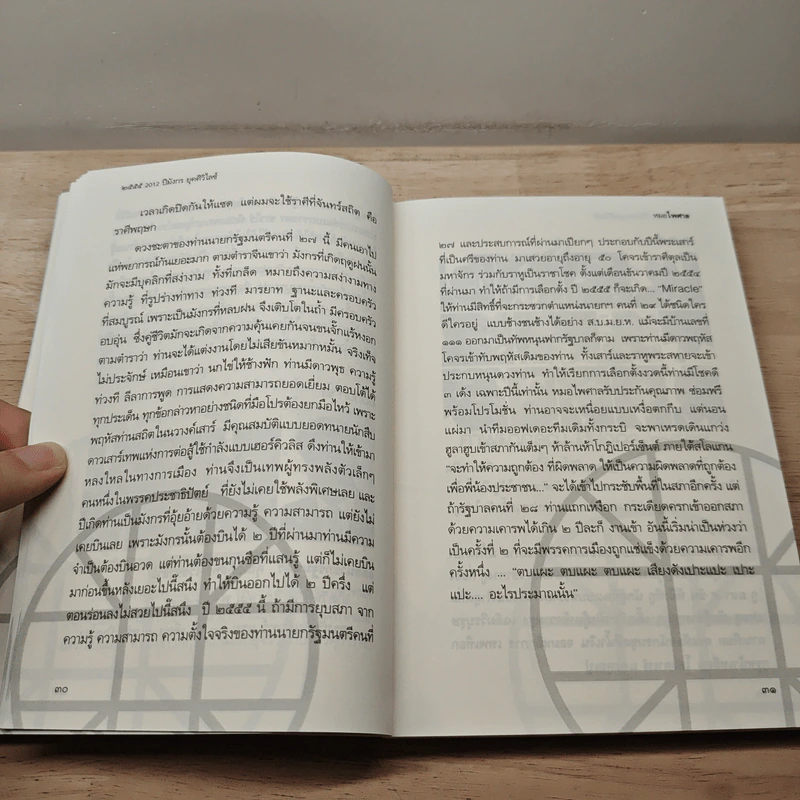 ๒๕๕๕ 2012 ปีมังกร ยุคศิวิไลซ์
เวลาเกิดปิดกันให้แซด แต่ผมจะใช้ราศีที่จันทร์สถิต คือ
ราศีพฤษก
ดวงชะตาของท่านนายกรัฐมนตรีคนที่ ๒๗ นี้ มีคนเอาไป
แห่พยากรณ์กันเยอะมาก ตามตำราจีนเขาว่า มังกรที่เกิดฤดูฝนนั้น
มักจะมีบุคลิกที่สง่างาม ทั้งที่เกล็ด หมายถึงความสง่างามทาง
ความรู้ ที่รูปร่างท่าทาง ท่วงที มารยาท ฐานะและครอบครัว
ที่สมบูรณ์ เพราะเป็นมังกรที่หลบฝน จึงเติบโตในถ้ำ มีครอบครัว
อบอุ่น ซึ่งคู่ชีวิตมักจะเกิดจากความคุ้นเคยกันจนขนจั๊กแร้หงอก
ตามตำราว่า ท่านจะได้แต่งงานโดยไม่เสียขันหมากหมั้น จริงเท็จ
ไม่ประจักษ์ เหมือนเขาว่า นกไข่ให้ช้างฟัก ท่านมีดาวพุธ ความรู้
ท่วงที ลีลาการพูด การแสดงความสามารถยอดเยี่ยม ตอบโต้ได้
ทุกประเด็น ทุกข้อกล่าวหาอย่างชนิดที่มือโปรต้องยกมือไหว้ เพราะ
พฤหัสท่านสถิตในวางค์เสาร์ มีคุณสมบัติแบบยอดทนายนักสืบ
ดาวเสาร์เทพแห่งการต่อสู้ใช้กำลังแบบเฮอร์คิวลิส ดึงท่านให้เข้ามา
หลงใหลในทางการเมือง ท่านจึงเป็นเทพผู้ทรงพลังตัวเล็กๆ
คนหนึ่งในพรรคประชาธิปัตย์ ที่ยังไม่เคยใช้พลังพิเศษเลย และ
ปีเกิดท่านเป็นมังกรที่อุ้ยอ้ายด้วยความรู้ ความสามารถ แต่ยังไม่
เคยบินเลย เพราะมังกรนั้นต้องบินได้ ๒ ปีที่ผ่านมาท่านมีความ
จำเป็นต้องบินอวด แต่ท่านต้องขนกุนซือที่แสนรู้ แต่ก็ไม่เคยบิน
มาก่อนขึ้นหลังเยอะไปนี๊สนึง ทำให้บินออกไปได้ ๒ ปีครึ่ง แต่
ตอนร่อนลงไม่สวยไปนี๊สนึง ปี ๒๕๕๕ นี้ ถ้ามีการยุบสภา จาก
ความรู้ ความสามารถ ความตั้งใจจริงของท่านนายกรัฐมนตรีคนที่
๓๐
หมอไพศาล
๒๗ และประสบการณ์ที่ผ่านมาเปียกๆ ประกอบกับปีนี้พระเสาร์
ที่เป็นศรีของท่าน มาเสวยอายุถึงอายุ ๕๐ โคจรเข้าราศีตุลเป็น
มหาจักร ร่วมกับราหูเป็นราชาโชค ตั้งแต่เดือนธันวาคมปี ๒๕๕๔
ที่ผ่านมา ทำให้ถ้ามีการเลือกตั้ง ปี ๒๕๕๕ ก็จะเกิด... "Miracle"
ให้ท่านมีสิทธิ์ที่จะกระซวกตำแหน่งนายกฯ คนที่ ๒๙ ได้ชนิดใคร
ดีใครอยู่ แบบช้างชนช้างได้อย่าง ส.บ.ม.ย.ห. แม้จะมีบ้านเลขที่
๑๑๑ ออกมาเป็นทัพหนุนฟากรัฐบาลก็ตาม เพราะท่านมีดาวพฤหัส
โคจรเข้าทับพฤหัสเดิมของท่าน ทั้งเสาร์และราหูพระสหายจะเข้า
ประกบหนุนดวงท่าน ทำให้เรียกการเลือกตั้งงวดนี้ท่านมีโชคดี
๓ เด้ง เฉพาะปีนี้เท่านั้น หมอไพศาลรับประกันคุณภาพ ซ่อมฟรี
พร้อมโปรโมชั่น ท่านอาจจะเหนื่อยแบบเหงื่อตกกีบ แต่นอน
แผ่มา นำทีมออฟเดอะทีมเดิมทั้งกระบิ จะพาเหรดเดินแกว่ง
ฮูลาฮูบเข้าสภากันเต็มๆ ห้าล้านห้าโกฏิเปอร์เซ็นต์ ภายใต้สโลแกน
"จะทำให้ความถูกต้อง ที่ผิดพลาด ให้เป็นความผิดพลาดที่ถูกต้อง
เพื่อพี่น้องประชาชน..." จะได้เข้าไปกระชับพื้นที่ในสภาอีกครั้ง แต่
ถ้ารัฐบาลคนที่ ๒๘ ท่านแถกเหงือก กระเดียดครกเข้าออกสภา
ด้วยความเคารพได้เกิน ๒ ปีละก็ งานเข้า อันนี้เริ่มน่าเป็นห่วงว่า
เป็นครั้งที่ ๒ ที่จะมีพรรคการเมืองถูกแช่แข็งด้วยความเคารพอีก
ครั้งหนึ่ง ... "ตบแผะ ตบแผะ ตบแผะ เสียงดังเปาะแปะ เปาะ
แปะ.... อะไรประมาณนั้น"
๓๑